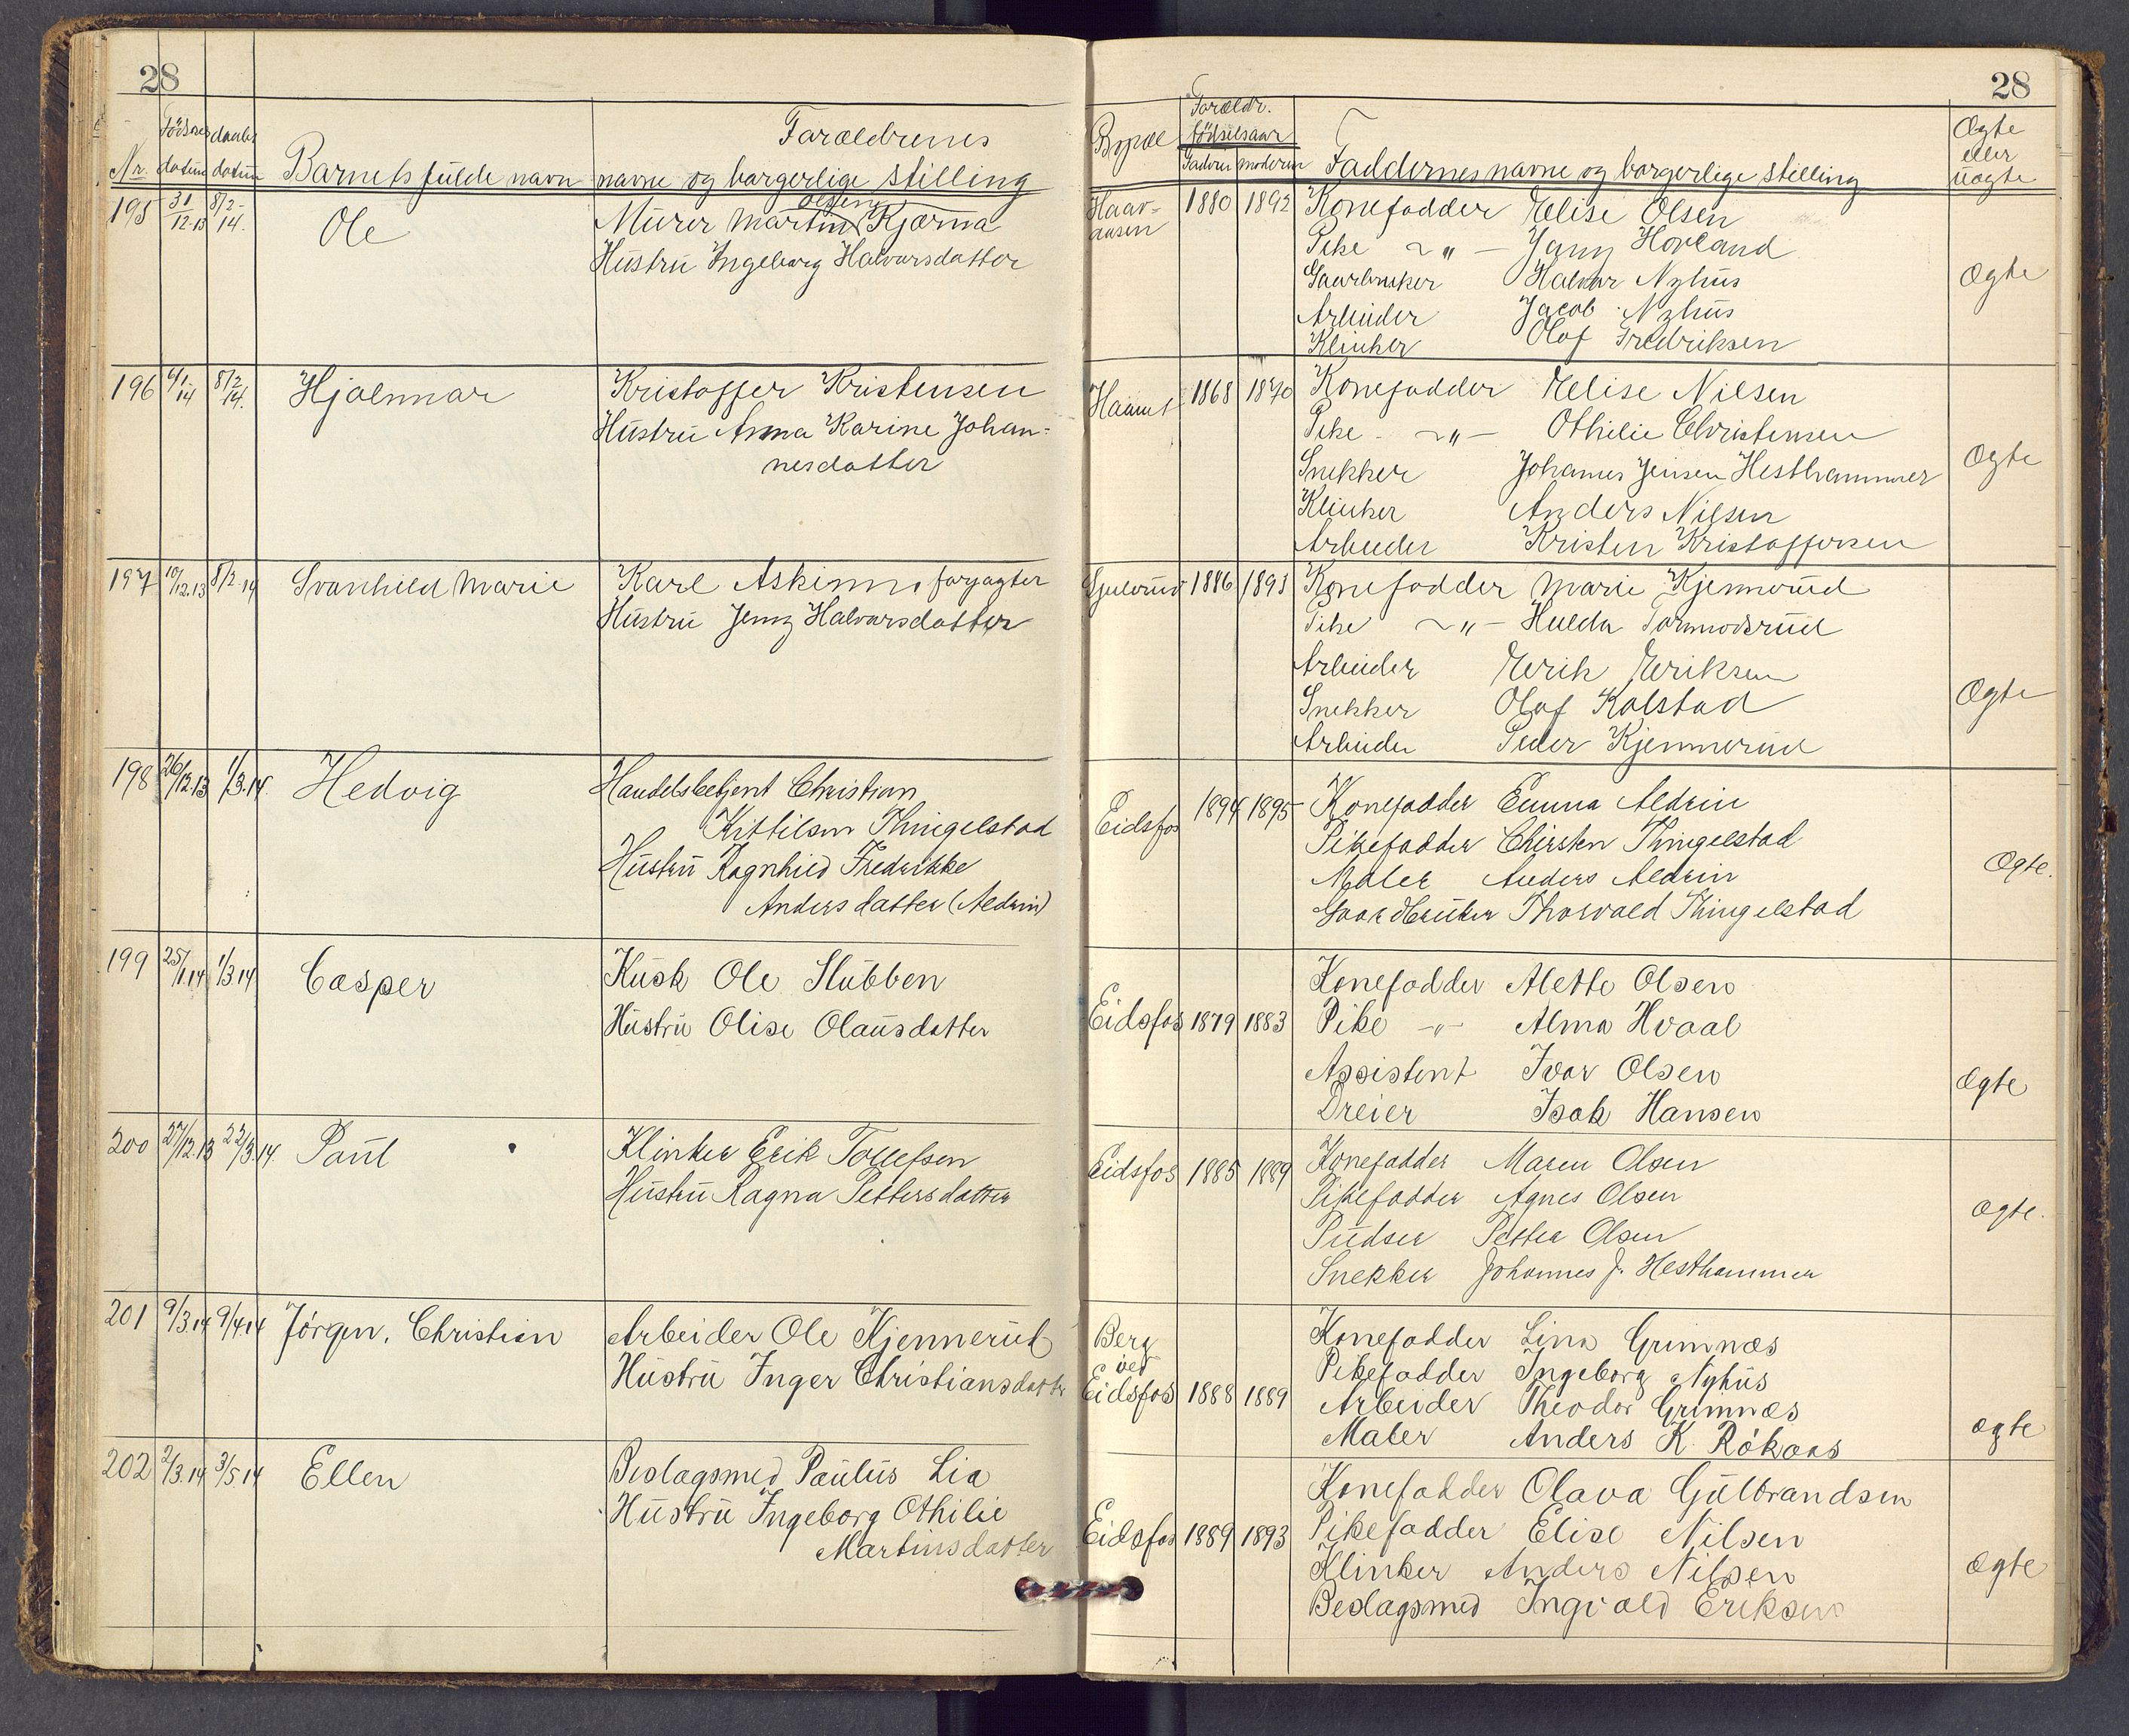 28
28
Nr.
Födsels datum
daabs datum
Barnets fulde navn
Foræeldrenes
navne og borgerlige stilling
Bopæl
Foræeldr.
födselsaar
Faderen moderen
Faddernes navne og borgerlige stilling
Ægte
eller
uægte
195 31/12.13 8/2-14. Ole
Olsen
Murer Martin Kjærna
Hustru Ingeborg Halvorsdatter
1880 1892
Konefadder Elise Olsen
Pike ~"- Jany Hovland
Gaarbruker Halvor Nyhus
Arbeider Jacob Nyhus
Klinker Olaf Fredriksen
Ægte
196 8/2 14. Hjalmar
Kristoffer Kristensen
Hustru Anna Karine Johan-
nesdatter
1868 1870
Konefadder Elise Nilsen
Pike ~"- Othilie Christensen
Snekker Johannes Jensen Hesthammer
Klinker Anders Nilsen
Arbeider Kristen Kristoffersen
Ægte
197 10/12.13 8/2-14 Svanhild Marie
Karl Askimn forpagter
Hustru Jenny Halvorsdatter
1886 1891
Konefadder Marie Kjennerud
Pike ~"- Hulda Tormodsrud
Arbeider Erik Eriksen
Snekker Olaf Kolstad
Arbeider Peder Kjennerud
Ægte
198 26/12.13 1/3.14. Hedvig
Handelsbetjent Christian
Kittilsen Thingelstad
Hustru Ragnhild Fredrikke
Andersdatter (Aldrin)
Eidsfos 1894 1895
Konefadder Emma Aldrin
Pikefadder Kirsten Thingelstad
Maler Anders Aldrin
Gaardbruker Thorvald Thingelstad
Ægte.
199 25/1.14 1/3.14 Casper
Kusk Ole Stubben
Hustru Olise Olausdatter
Eidsfos 1879 1883
Konefadder Alette Olsen
Pike -"- Alma Hvaal
Assistent Ivar Olsen
Dreier Isak Hansen
Ægte
200 27/12.13 22/3.14. Paul
Klinker Erik Tollefsen
Hustru Ragna Pettersdatter
Eidsfos 1885 1889
Konefadder Maren Olsen
Pikefadder Agnes Olsen
Pudser Petter Olsen
Snekker Johannes J. Hesthammer
ægte.
201 9/3.14 9/4.14 Jörgen, Christian
Arbeider Ole Kjennerud
Hustru Inger Christiansdatter
Berg
ved
Eidsfos 1888 1889
Konefadder Lina Grimnæs
Pikefadder Ingeborg Nyhus
Arbeider Theodor Grimnæs
Maler Anders K. Rökaas
ægte
202 2/3.14 3/5.14 Ellen
Beslagsmed Paulus Lia
Hustru Ingeborg Othilie
Martinsdatter
Eidsfos 1889 1893
Konefadder Olava Gulbrandsen
Pikefadder Elise Nilsen
Klinker Anders Nilsen
Beslagsmed Ingvald Eriksen
ægte